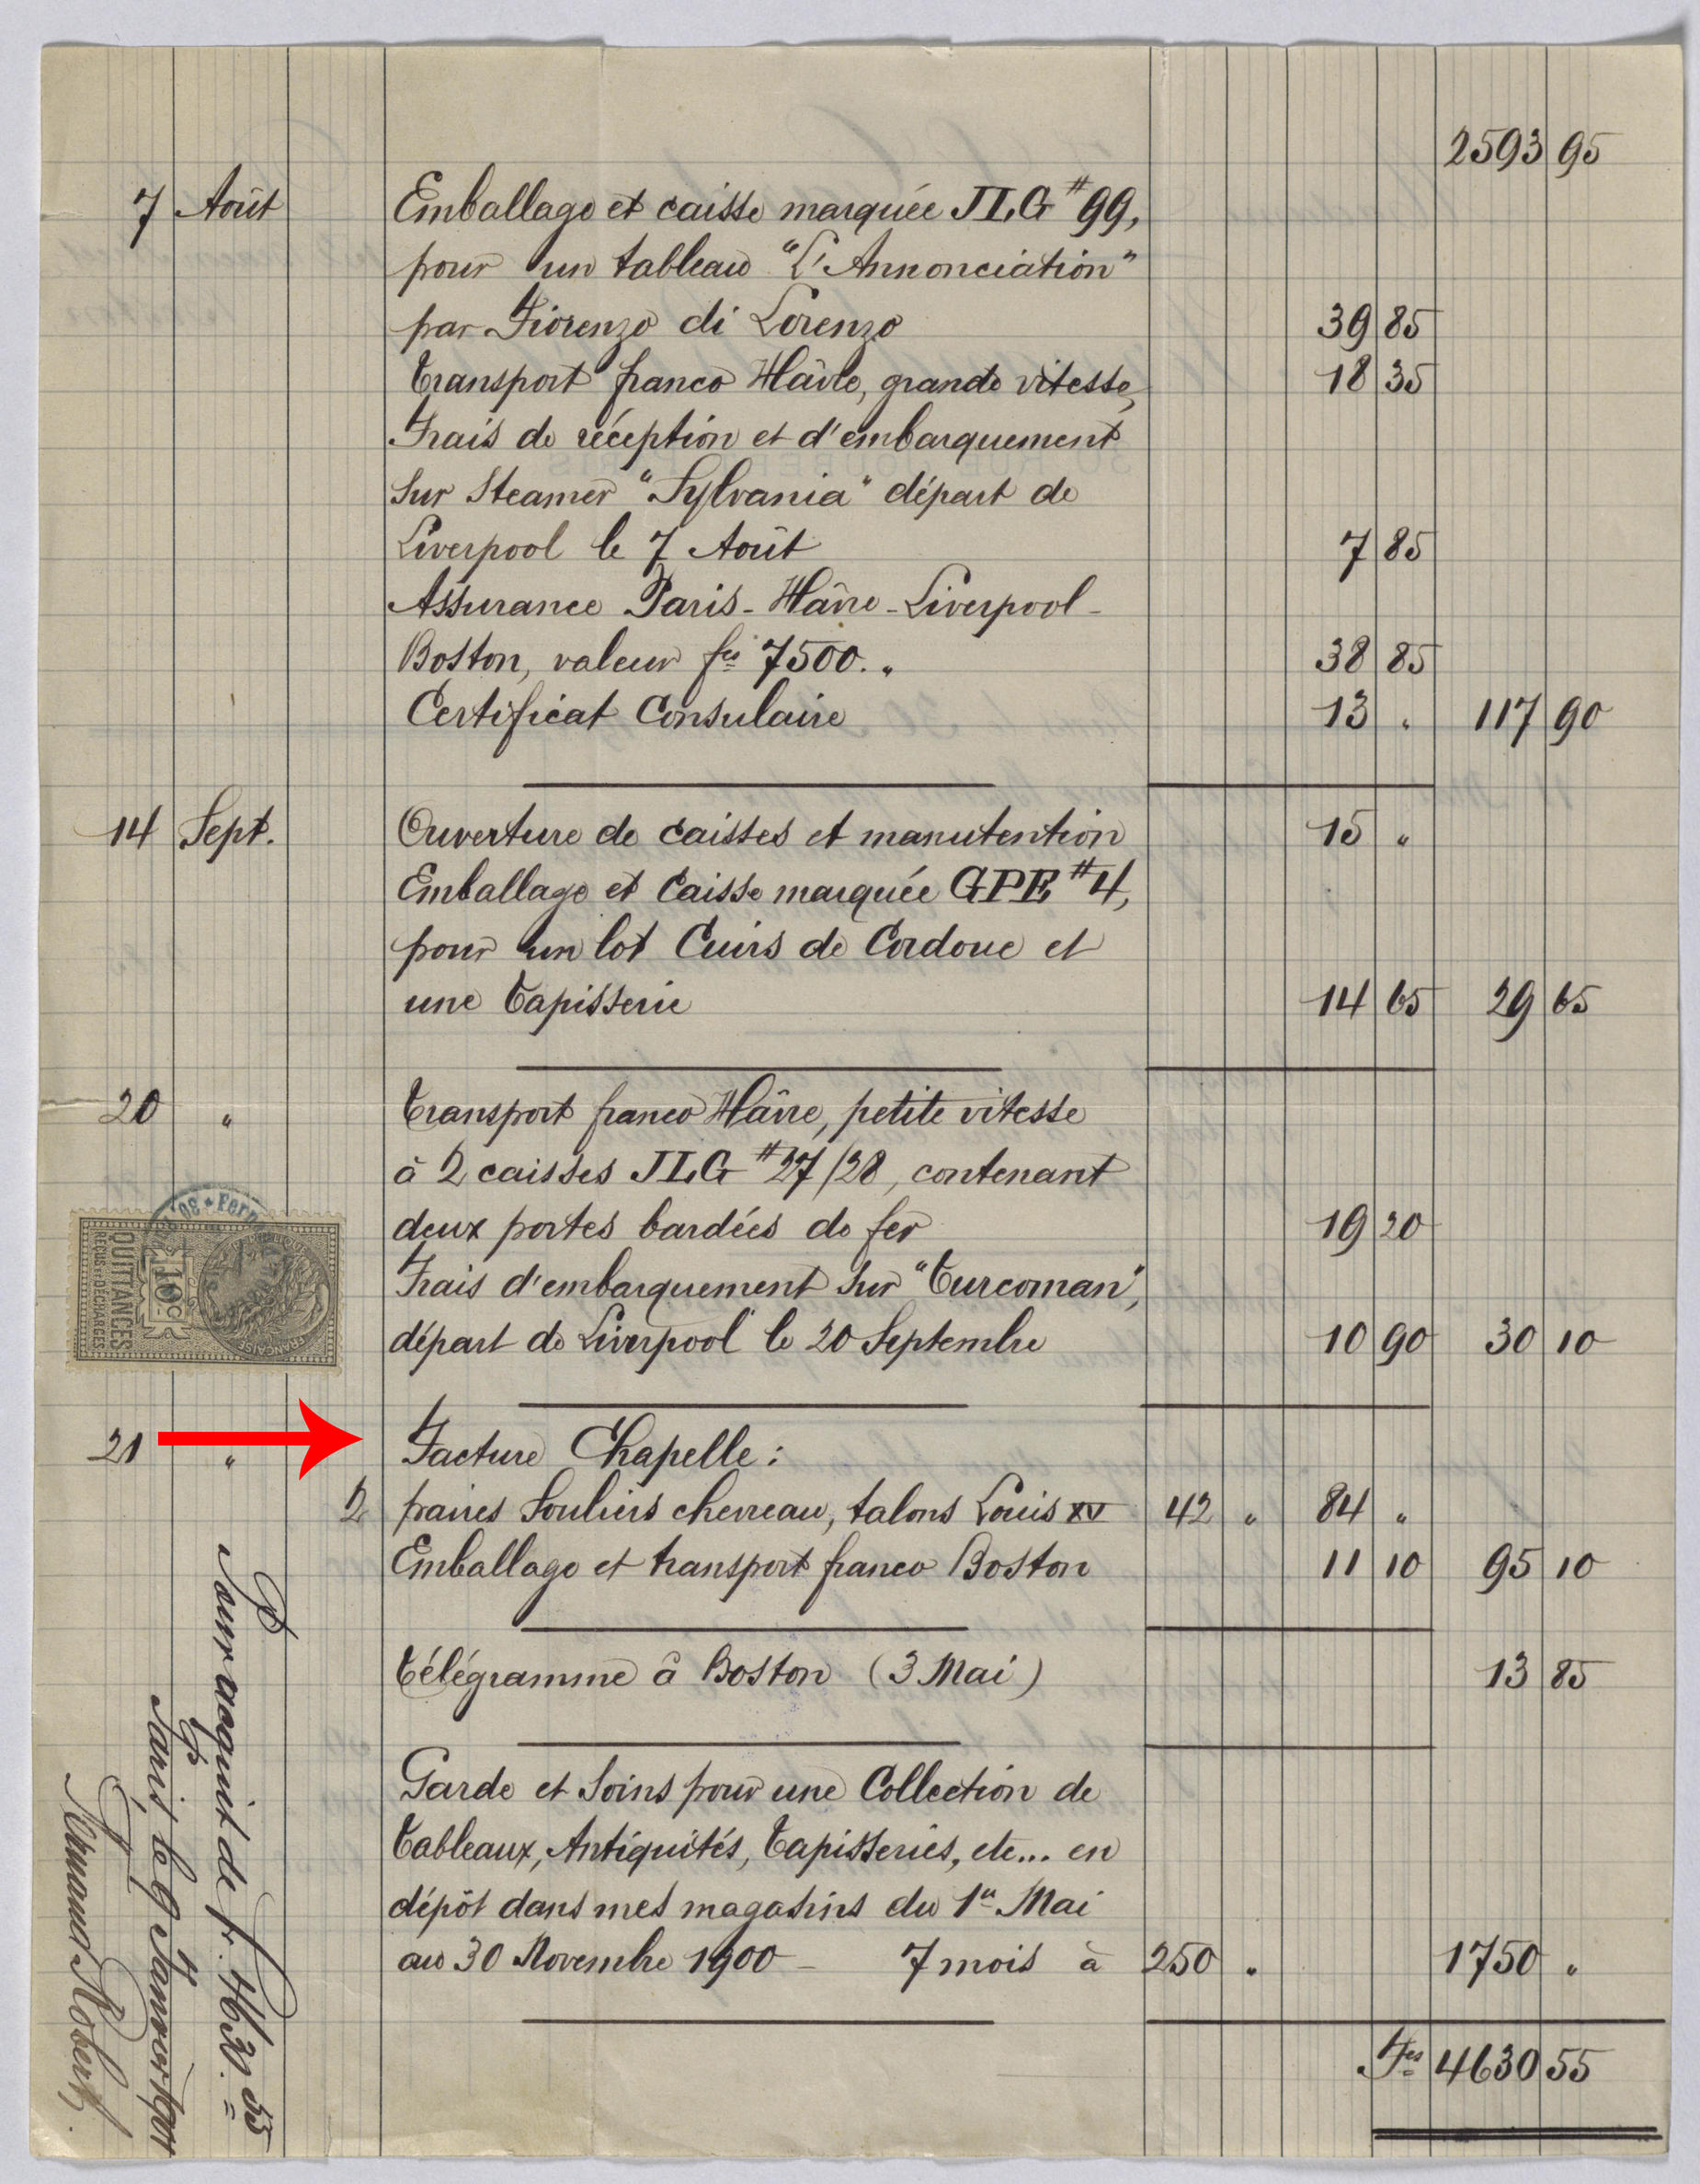 2593 95
7 Août Emballage et caisse marquée JLG #99,
pour un tableau "L'Annonciation"
par Fiorenzo di Lorenzo 39 85
Transport franco Hâvre, grande vitesse, 18 35
Frais de réception et d'embarquement
sur Steamer "Sylvania" départ de
Liverpool le 7 Août 7 85
Assurance Paris-Hâvre-Liverpool-
Boston, valeur fcs 7500. " 38 85
Certificat Consulaire 13 " 117 90
14 Sept. Ouverture de caisses et manutention 15 "
Emballage et caisse marquée GPE #4,
pour un lot Cuirs de Cordoue et
une Tapisserie 14 65 29 65
20 " Transport franco Hâvre, petite vitesse
à 2 caisses JLG #27/28, contenant
deux portes bardées de fer 19 20
Frais d'embarquement sur "Turcoman",
départ de Liverpool le 20 Septembre 10 90 30 10
21 " Facture Chapelle :
2 paires Souliers chevreau, talons Louis XV 42 " 84 "
Emballage et transport franco Boston 11 10 95 10
Télégramme à Boston (3 Mai) 13 85
Garde et Soins pour une Collection de
Tableaux, Antiquités, Tapisseries, etc... en
dépôt dans mes magasins du 1er Mai
au 30 Novembre 1900 - 7 mois à 250 " 1750 "
Fcs 4630 55
QUITTANCES
REÇUS ET DÉCHARGES
10c
FRANÇAISE
30, * Fern
Pour acquit de fr. 4630. 55
Paris, le 9 Janvier 1901
Fernand Robert.